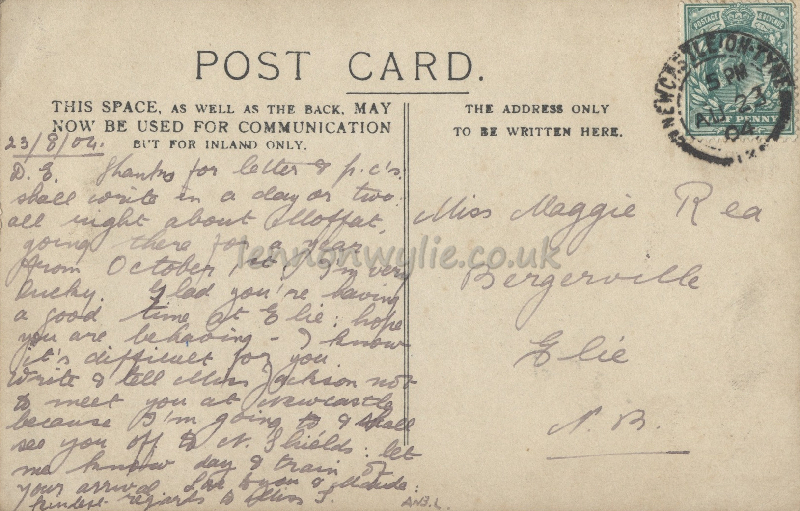 POST CARD.
THIS SPACE, AS WELL AS THE BACK, MAY
NOW BE USED FOR COMMUNICATION
BUT FOR INLAND ONLY.
23/8/04.
D. E. Thanks for letter & p.c's:
shall write in a day or two:
all right about Moffat,
going there for a year
from October 1st. I'm very
lucky. Glad you're having
a good time at Elie: hope
you are behaving - I know
it's difficult for you
Write & tell Miss Jackson not
to meet you at Newcastle
because I'm going to & shall
see you off to N. Shields: let
me know day & train of
your arrival to you & Maude:
kindest regards to Miss J.
THE ADDRESS ONLY
TO BE WRITTEN HERE.
Miss Maggie Rea
Bergerville
Elie
N. B.
POSTAGE
NEWCASTLE-ON-TYNE
5 PM
AU 23
04
HALF PENNY
lennonwylie.co.uk